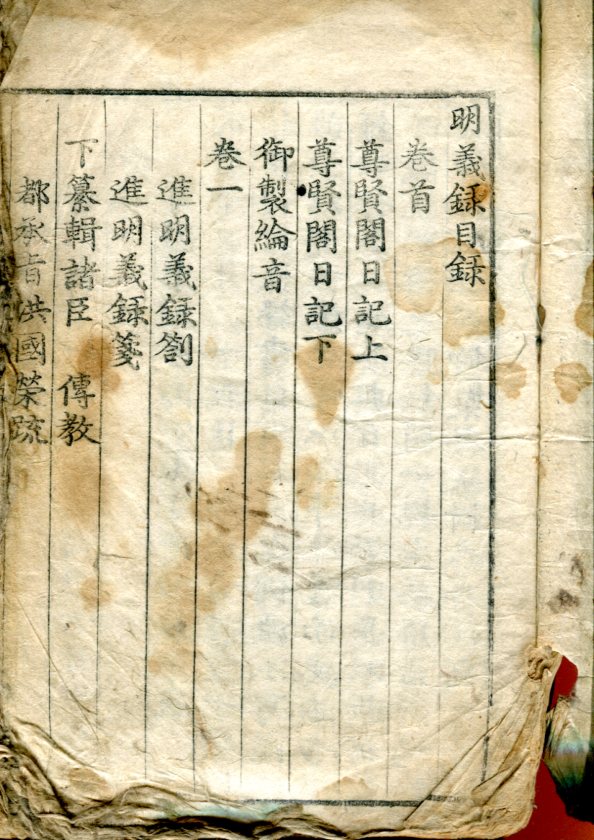 明義録目録
卷首
尊賢閣日記上
尊賢閣日記下
御製綸音
卷一
進明義録劄
進明義録箋
下纂輯諸臣 傳教
都承旨洪國榮疏